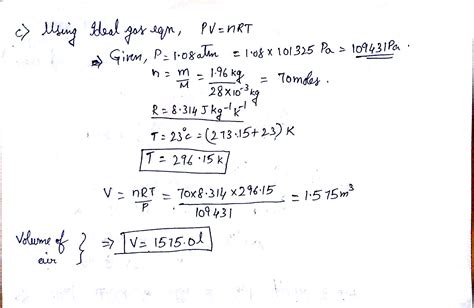 c) Using Ideal gas eqn, PV = nRT
⇒ Given, P = 1.08 atm = 1.08 × 101325 Pa = 109431 Pa.
n = m/M = 1.96 kg / 28×10⁻³ kg = 70 moles.
R = 8.314 J kg⁻¹ K⁻¹
T = 23°C = (273.15 + 23) K
T = 296.15 K
V = nRT/P = 70×8.314×296.15 / 109431 = 1.575 m³
Volume of air } ⇒ V = 1575.0 l